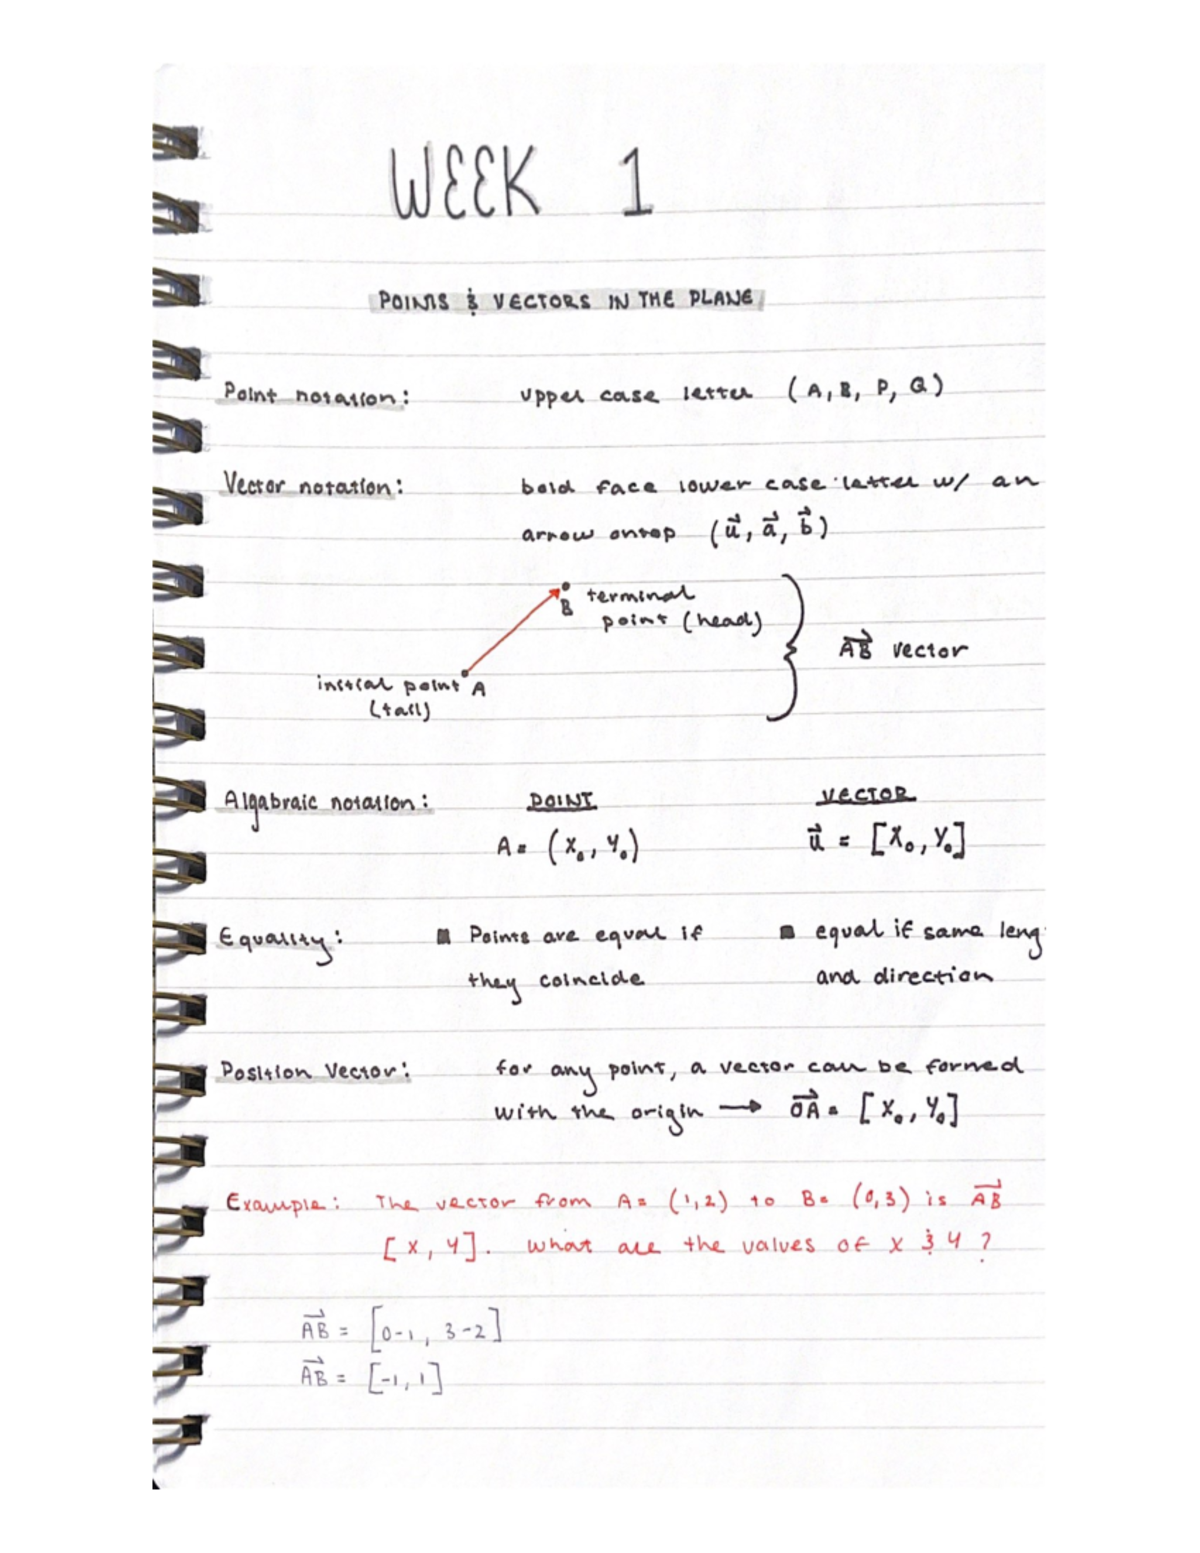 WEEK 1
POINTS & VECTORS IN THE PLANE
Point notation: upper case letter (A, B, P, Q)
Vector notation: bold face lower case letter w/ an
arrow ontop (u⃗, a⃗, b⃗)
B terminal
point (head)
AB⃗ vector
initial point A
(tail)
Algabraic notation: POINT VECTOR
A = (x₀, y₀) u⃗ = [x₀, y₀]
Equality: ■ Points are equal if ■ equal if same leng
they coincide and direction
Position Vector: for any point, a vector can be formed
with the origin → OA⃗ = [x₀, y₀]
Example: The vector from A = (1,2) to B = (0,3) is AB⃗
[x, y]. What are the values of x & y ?
AB⃗ = [0-1, 3-2]
AB⃗ = [-1, 1]